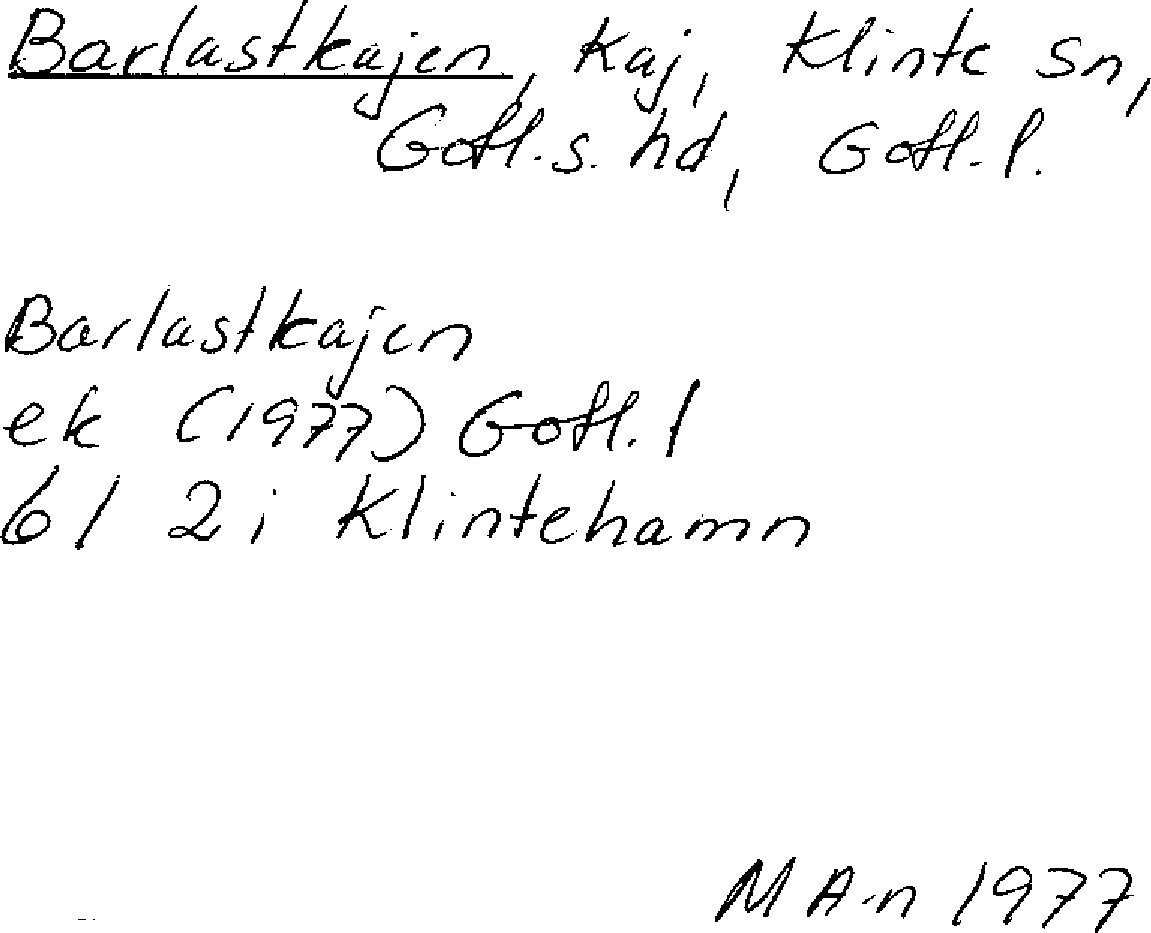 Barlastkajen, kaj, Klinte sn,
Gotl. s. hd, Gotl. l.
Barlastkajen
ek (1977) Gotl. l
6 I 2 i Klintehamn
M A-n 1977